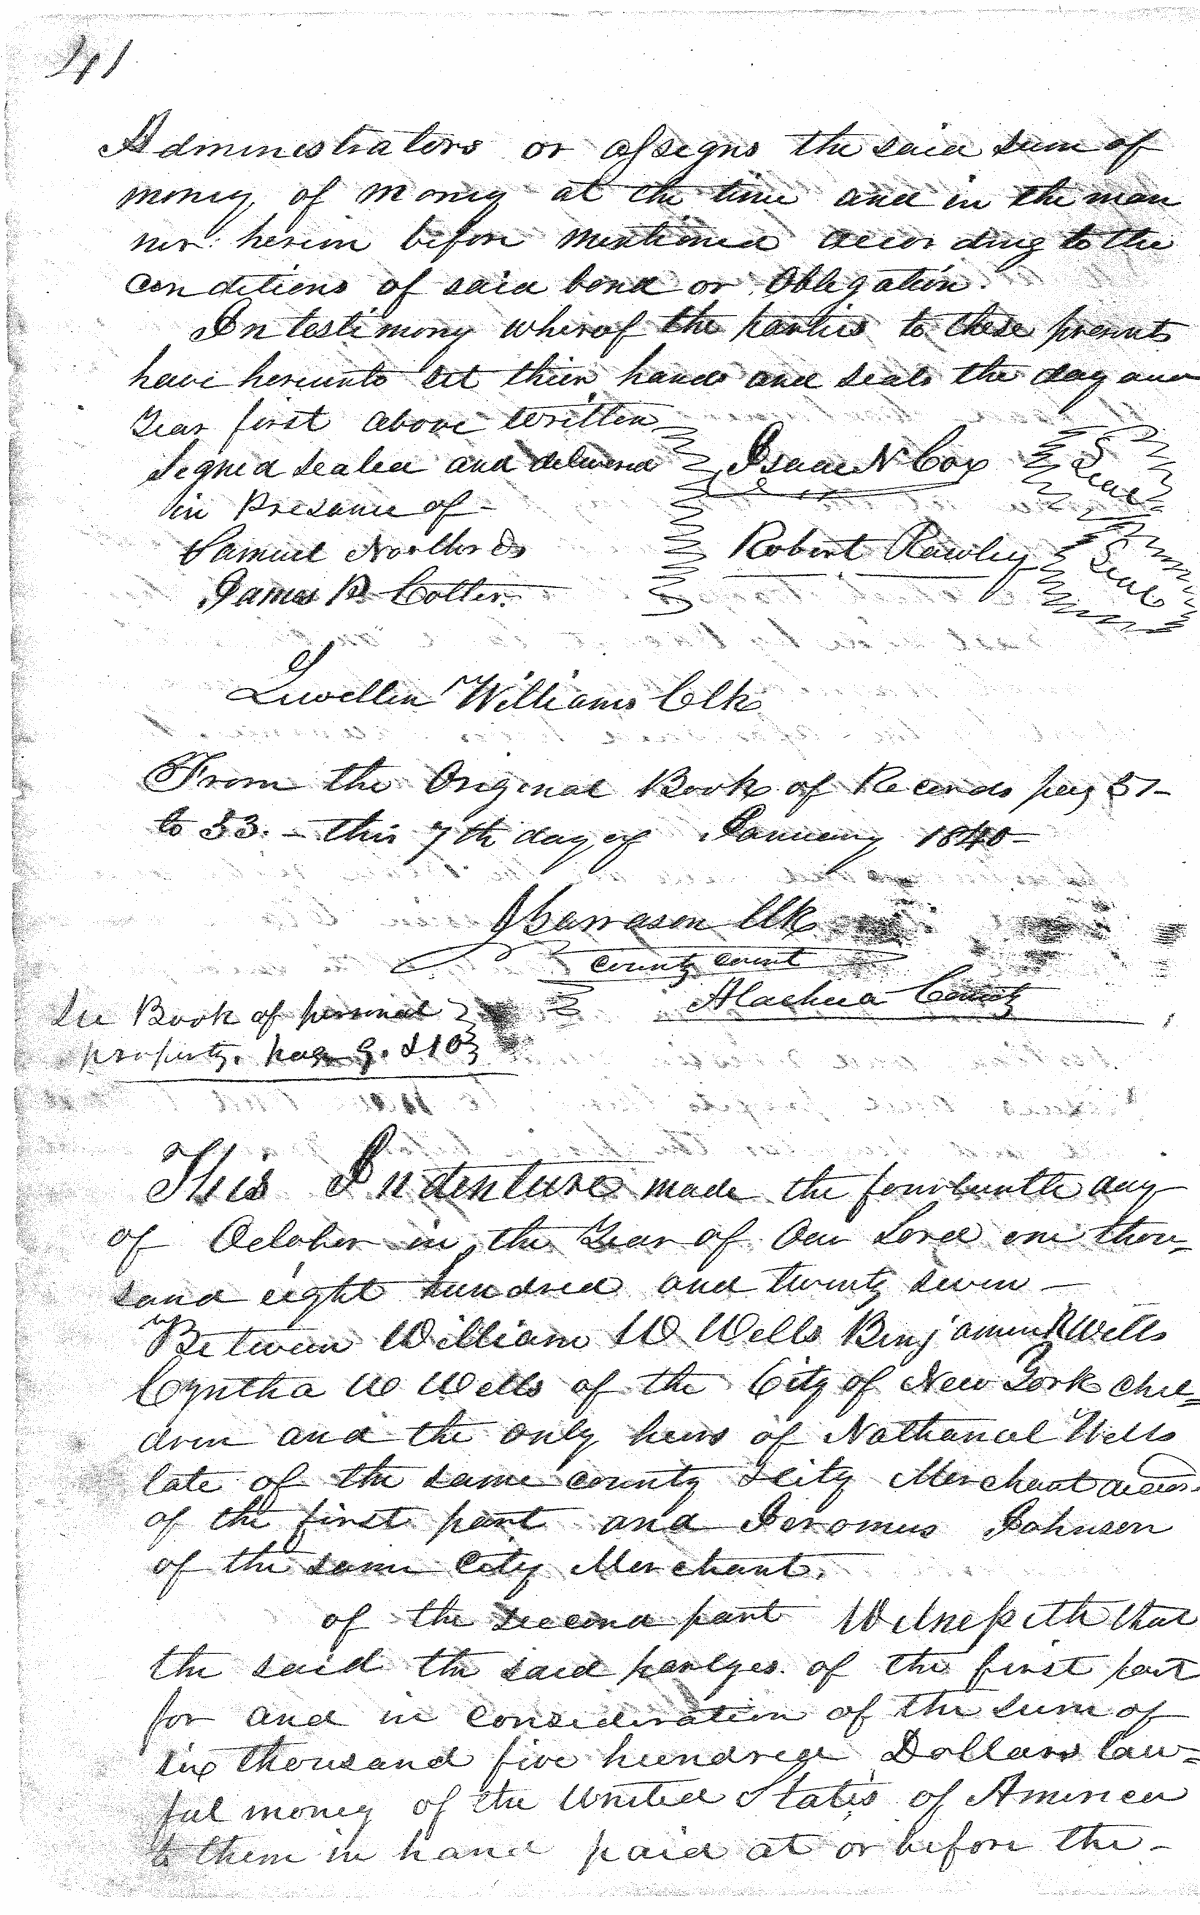 41
Administrators or assigns the said sum of
money, of money at the time and in the man
ner herein before mentioned according to the
conditions of said bond or Obligation.
In testimony whereof the parties to these presents
have hereunto set their hands and seals the day and
Year first above written
Signed sealed and delivered Isaac N Cox Seal
in Presance of -
Samuel Robert Rawley Seal
James P Cotter.
Lewellin Williams Clk
From the Original Book of Records pag 51-
to 53. - this 7th day of January 1840 -
Clk
county court
Alachua County
See Book of personal
property. page 9. & 10
This Indenture made the fourteenth day
of October in the Year of Our Lord one thou-
sand eight hundred and twenty seven -
Between William W Wells Benjamin R Wells
Cyntha W Wells of the City of New York chil=
dren and the only heirs of Nathanael Wells
late of the same county & city Merchant
of the first part and Jeromus Johnson
of the same City Merchant.
of the second part Witnesseth that
the said the said partyes of the first part
for and in consideration of the sum of
six thousand five hundred Dollars law=
ful money of the United States of America
to them in hand paid at or before the -